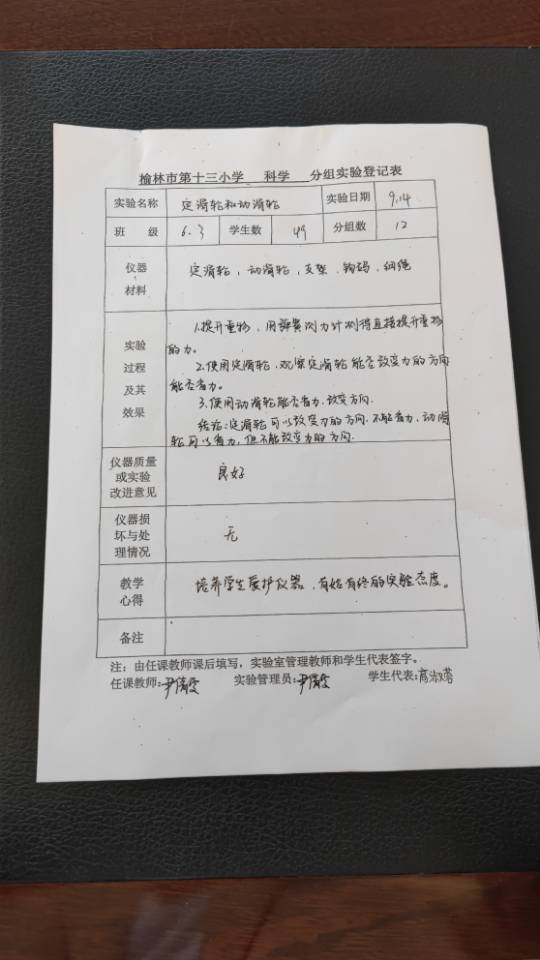 榆林市第十三小学 科学 分组实验登记表
实验名称 定滑轮和动滑轮 实验日期 9.14
班 级 6.3 学生数 49 分组数 12
仪器
材料
定滑轮,动滑轮,支架、钩码、细绳
实验
过程
及其
效果
1.提升重物,用弹簧测力计测得直接提升重物
的力。
2.使用定滑轮,观察定滑轮能否改变力的方向
能否省力。
3.使用动滑轮能否省力、改变方向.
结论:定滑轮可以改变力的方向.不能省力,动滑
轮可以省力,但不能改变力的方向.
仪器质量
或实验
改进意见
良好
仪器损
坏与处
理情况
无
教学
心得
培养学生爱护仪器、有始有终的实验态度。
备注
注:由任课教师课后填写,实验室管理教师和学生代表签字。
任课教师: 实验管理员: 学生代表: